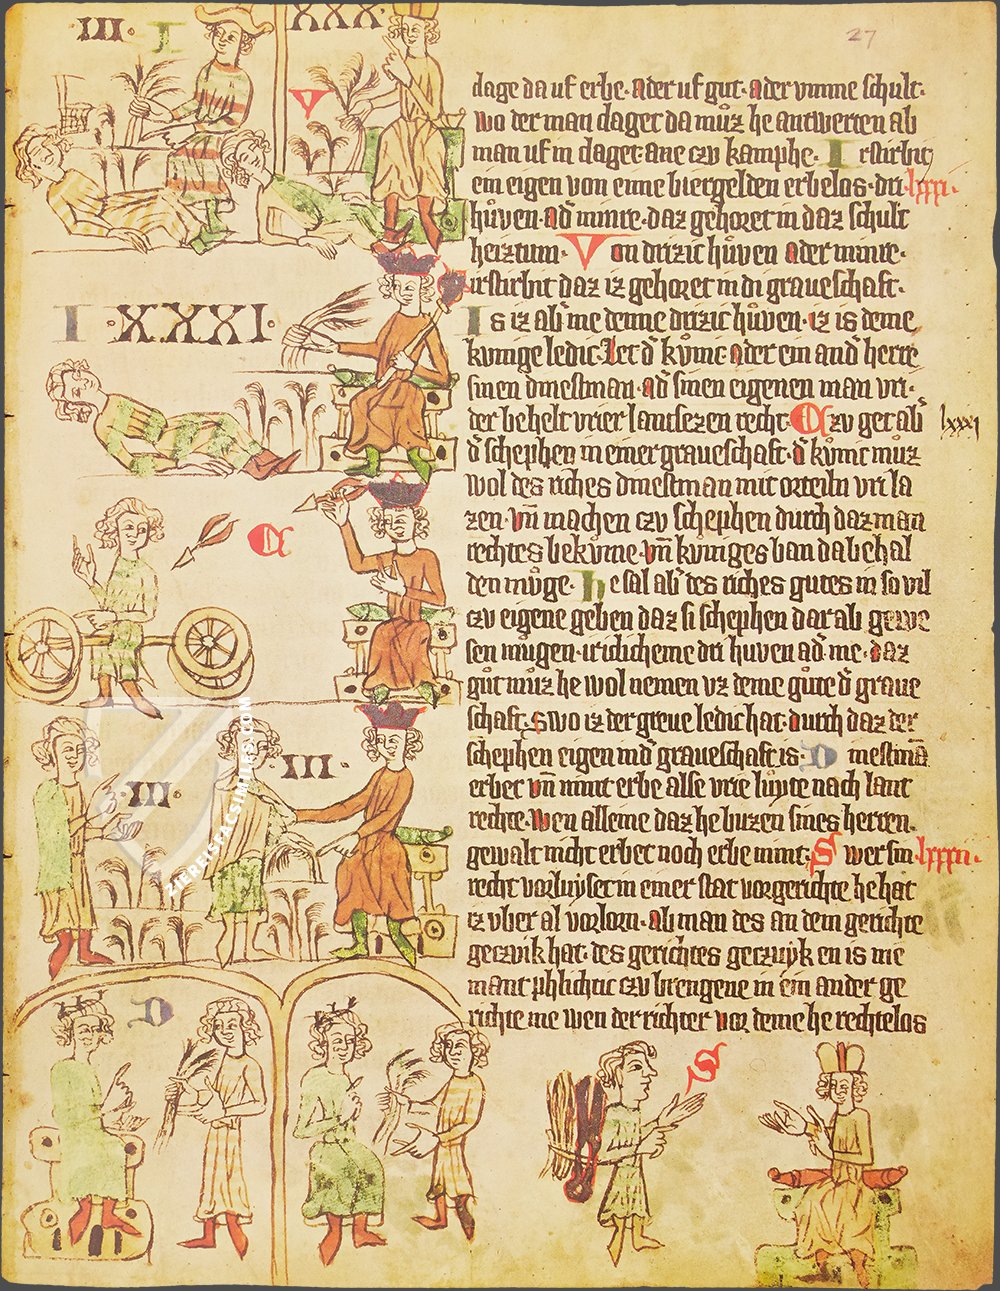 ·III· I
XXX
27
V
clage da uf erbe· ader uf gut· ader vmme schult·
wo der man claget da můz he antwerten ab
man uf in claget· ane czv kamphe· Irstirbit
ein eigen von eime biergelden erbelos· dri lxxx·
hůven· ad' minre· daz gehoret in daz schult
heiztum· Von drizic hůven ader minre·
irstirbit daz iz gehoret in di graueschaft·
I ·XXXI·
Is iz ab' me denne drizic hůven· iz is deme
kunige ledic· Let d' kvnic ader ein and' herre
sinen dinestman· ad' sinen eigenen man vri·
der behelt vrier lantsezen recht· Czv get ab' lxxxj
d' schephen in einer graueschaft· d' kvnic muz
wol des riches dinestman mit orteiln vri la
C
zen· vn̄ machen czv schephen durch daz man
rechtes bekvme· vn̄ kvniges ban da behal
den můge· he sal ab' des riches gutes in so vil
czv eigene geben daz si schephen dar ab gewe
sen můgen· iriclicheme dri huven ad' me· daz
gůt můz he wol nemen vz deme gůte d' graue
schaft· swo iz der greue ledic hat· durch daz der
schephen eigen in d' graueschaft is· Dinestmā
III
·III·
erbet vn̄ nimt erbe alse vrie luyte nach lant
rechte· wen alleine daz he buzen sines herren·
gewalt nicht erbet noch erbe nimt· Swer sin lxxxii·
recht vorluyset in einer stat vor gerichte he hat
iz vber al vorlorn· ab man des an dem gerichte
geczvik hat· des gerichtes geczuyk en is nie
mant phlichtic czv brengene in ein ander ge
richte me wen der richter vor deme he rechtelos
D
S
ZIEREISFACSIMILES.COM